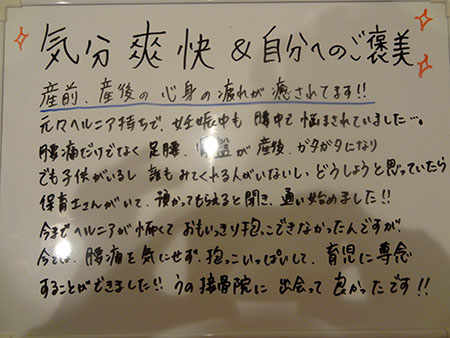 気分爽快&自分へのご褒美
産前、産後の心身の疲れが癒されてます!!
元々ヘルニア持ちで、妊娠中も腰中で悩まされていました…。
腰痛だけでなく足腰、骨盤が産後、ガタガタになり
でも子供がいるし誰もみてくれる人がいないし、どうしようと思っていたら
保育士さんがいて、預かってもらえると聞き、通い始めました!!
今までヘルニアが怖くておもいっきり抱っこできなかったんですが、
今では、腰痛を気にせず、抱っこいっぱいして、育児に専念
することができました!!うの接骨院に出会って良かったです!!